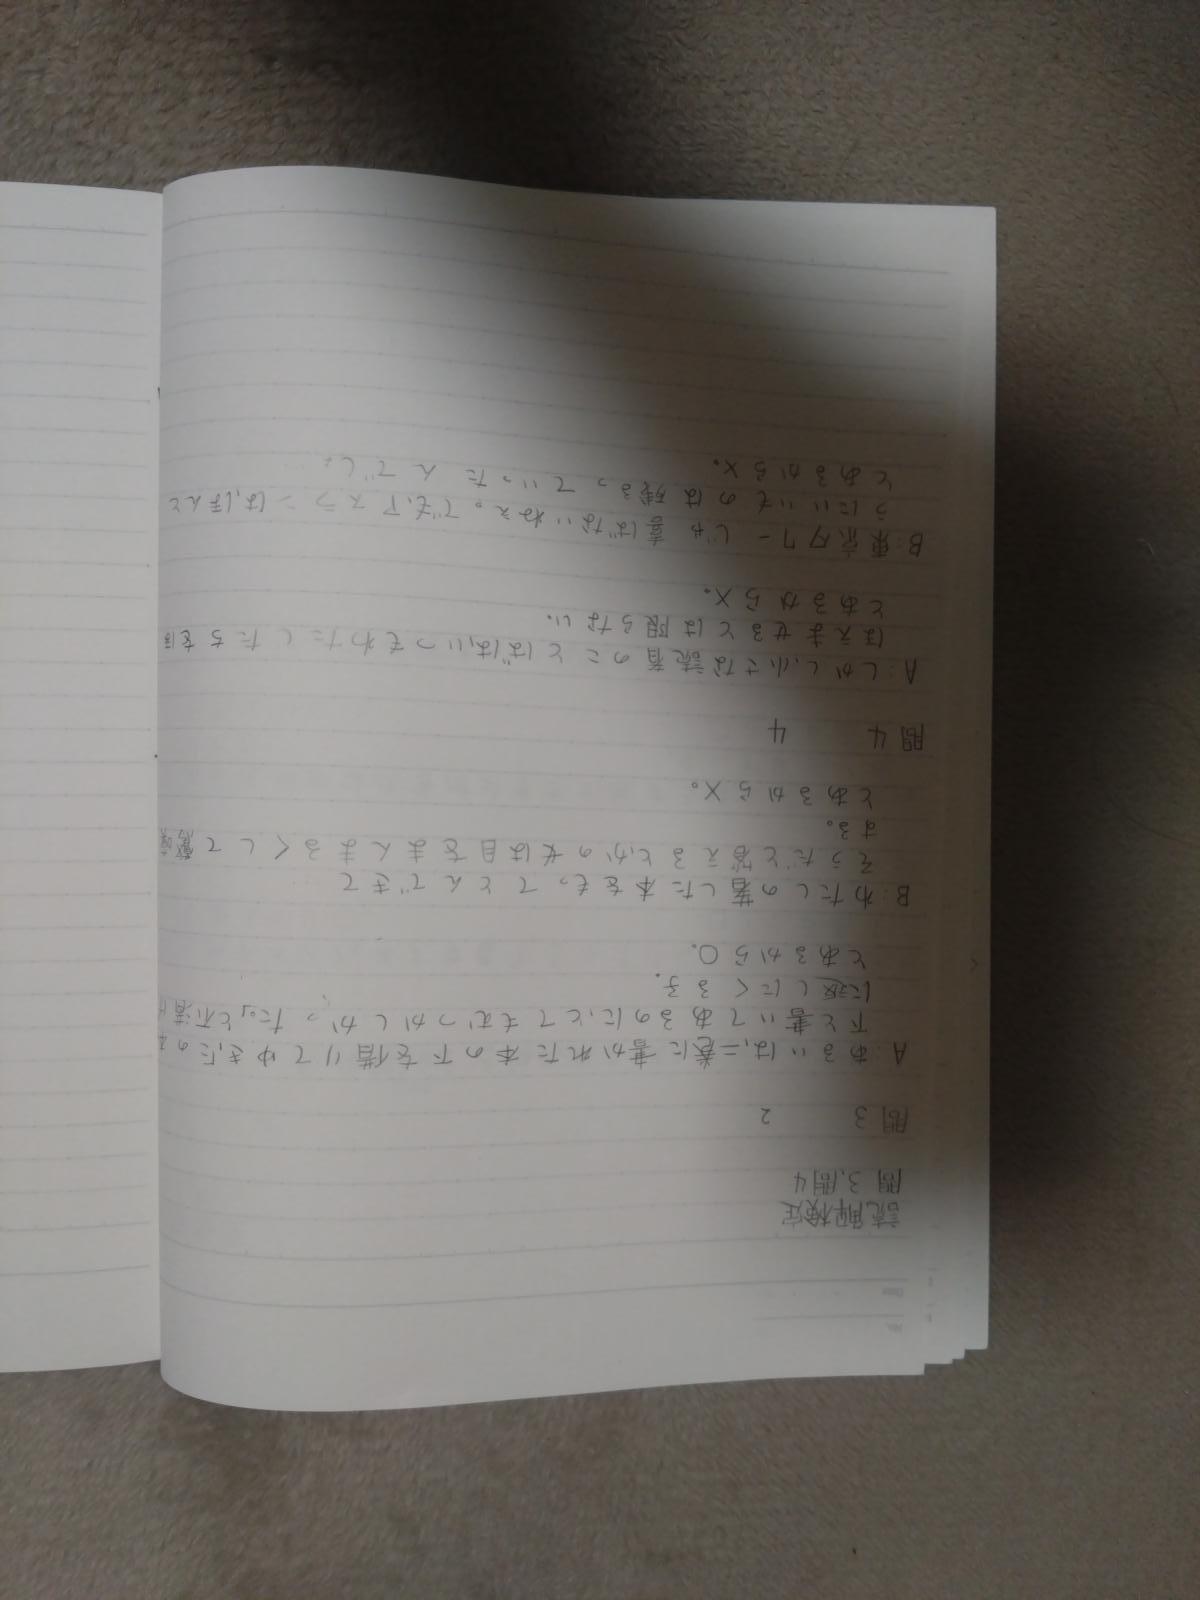 No.
Date
読解検定
問3,問4
問3 2
A:あるいは、二巻に書かれた本の下を借りてゆき、「この本
下と書いてあるのに、とてもむつかしかった。」と不満げ
に返しにくる子。
とあるから○。
B:わたしの著した本をもってとんできて
そうだと答えるとかの女は目をまんまるくして驚嘆
する。
とあるから×。
問4 4
A:しかし、小さな読者のことばは、いつもわたしたちをほ
ほえませるとは限らない。
とあるから×。
B:東京タワーじゃ喜ばないねえ。でも、アスラーンは、ほんと
うにいいものは残るっていったんでし
とあるから×。